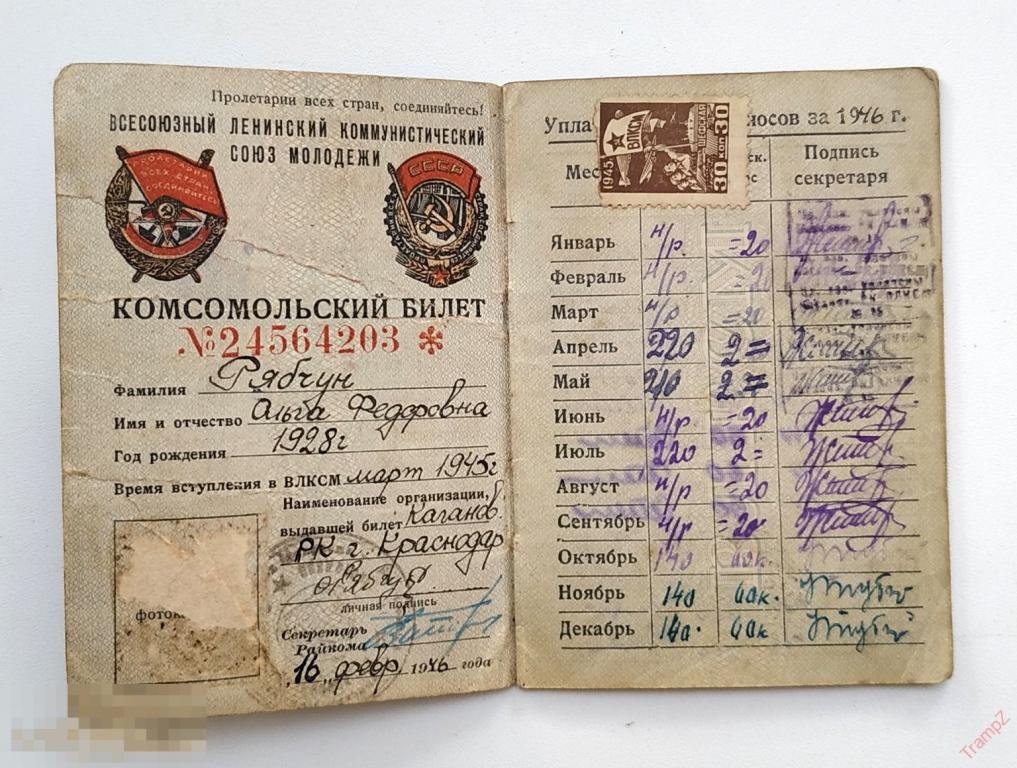 Пролетарии всех стран, соединяйтесь!
ВСЕСОЮЗНЫЙ ЛЕНИНСКИЙ КОММУНИСТИЧЕСКИЙ
СОЮЗ МОЛОДЕЖИ
ПРОЛЕТАРИИ
ВСЕХ СТРАН
СОЕДИНЯЙТЕСЬ
СССР
КОМСОМОЛЬСКИЙ БИЛЕТ
№24564203 *
Фамилия Рябчун
Имя и отчество Ольга Федоровна
Год рождения 1928г
Время вступления в ВЛКСМ март 1945г
Наименование организации,
выдавшей билет Каганов.
РК г. Краснодар
личная подпись
фото
Секретарь
Райкома
„16„ февр. 1946 года
Упла носов за 1946 г.
1945 ВЛКСМ ШЕФСКАЯ 30 коп 30
Мес ск. Подпись
с секретаря
Январь н/р. =20
Февраль н/р. =20
Март н/р =20
Апрель 220 2=
Май 210 2=
Июнь н/р. =20
Июль 220 2=
Август н/р =20
Сентябрь н/р =20
Октябрь 140 60к.
Ноябрь 140 60к.
Декабрь 140. 60к
TrampZ